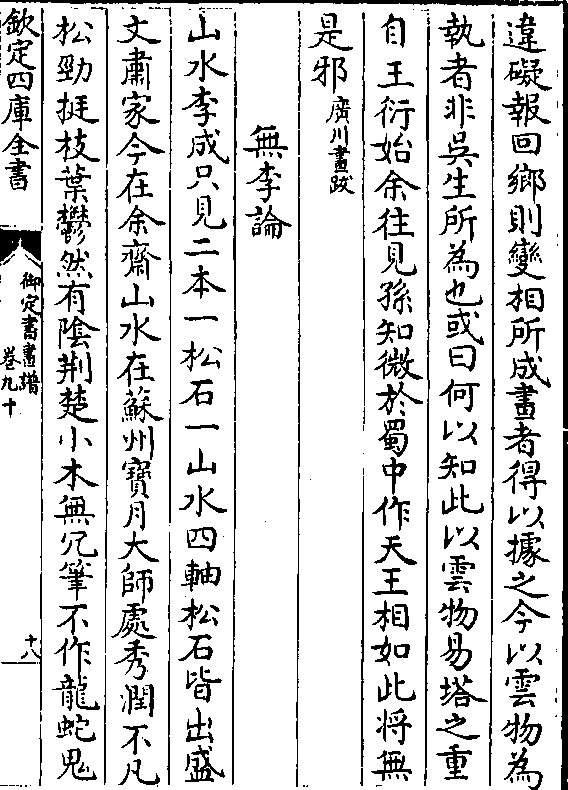 違礙報回鄉則變相所成畫者得以據之今以雲物為
執者非吳生所為也或曰何以知此以雲物易塔之重
自王衍始余往見孫知微於蜀中作天王相如此将無
是邪廣川畫跋
無李論
山水李成只見二本一松石一山水四軸松石皆出盛
文肅家今在余齋山水在蘇州寶月大師處秀潤不凡
松勁挺枝葉鬱然有陰荆楚小木無冗筆不作龍蛇鬼
欽定四庫全書
御定書畫譜
卷九十
十八